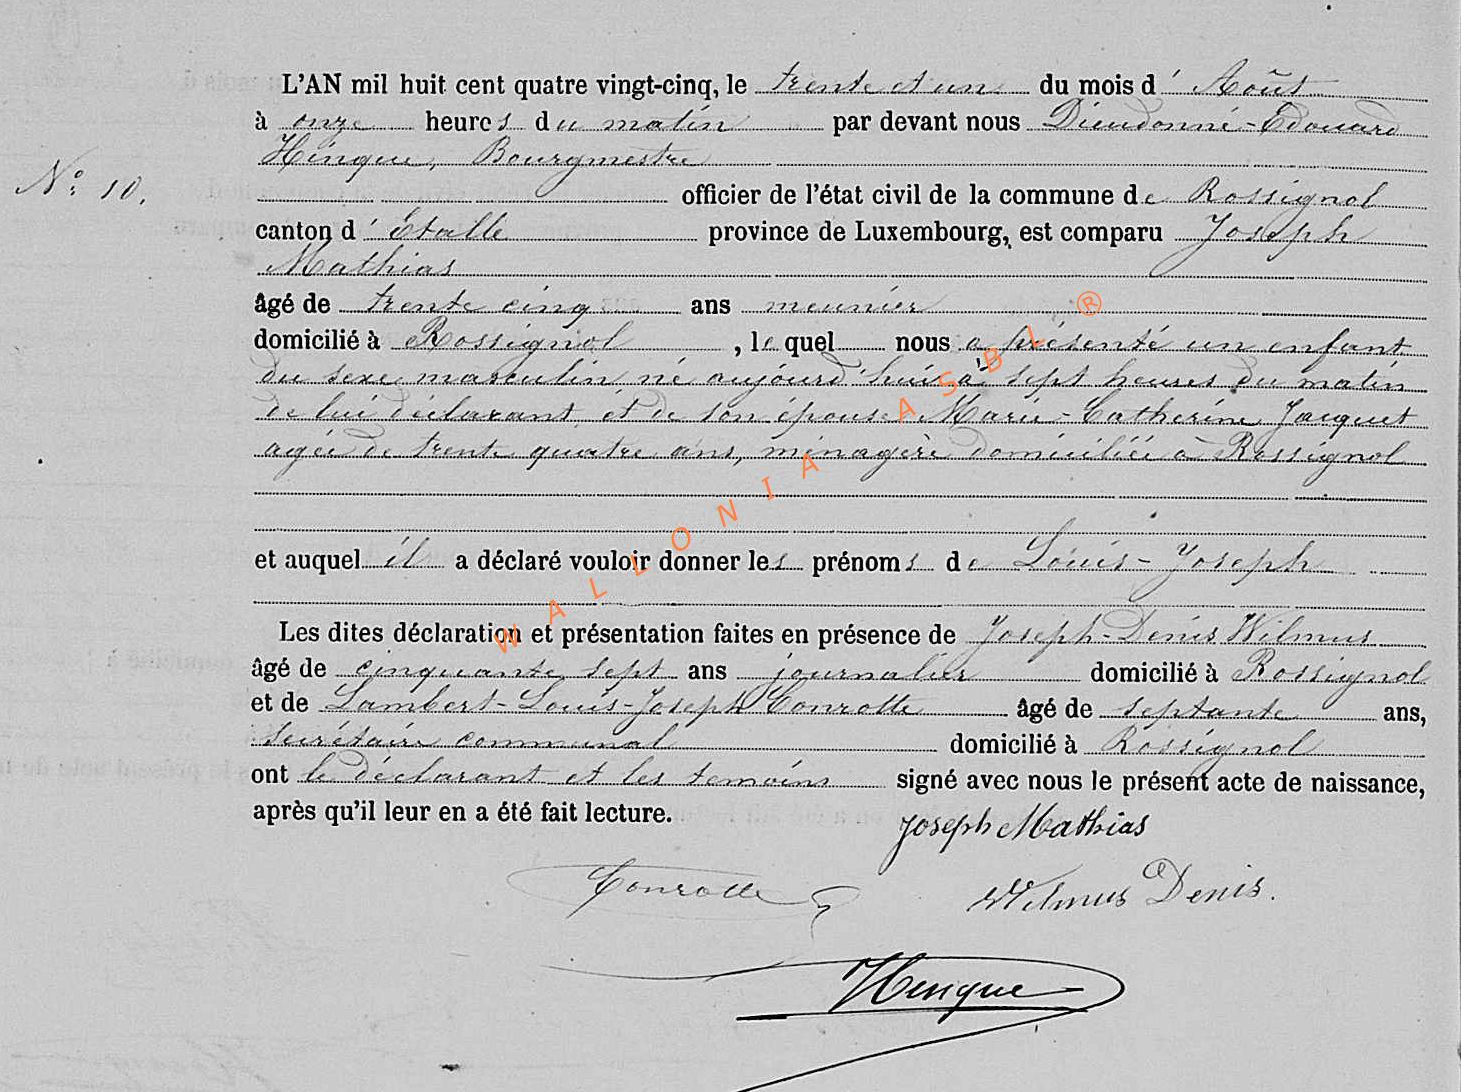 L'AN mil huit cent quatre vingt-cinq, le trente et un du mois d' Août
à onze heures du matin par devant nous Dieudonné-Edouard
Hinque, Bourgmestre
N.° 10.
officier de l'état civil de la commune de Rossignol
canton d' Etalle province de Luxembourg, est comparu Joseph
Mathias
âgé de trente cinq ans meunier
domicilié à Rossignol, le quel nous a présenté un enfant
du sexe masculin né aujourd'hui à sept heures du matin
de lui déclarant et de son épouse Marie-Catherine Jacquet
agée de trente quatre ans, ménagère domiciliée à Rossignol
et auquel il a déclaré vouloir donner les prénoms de Louis-Joseph
Les dites déclaration et présentation faites en présence de Joseph-Denis Wilmus
âgé de cinquante sept ans journalier domicilié à Rossignol
et de Lambert-Louis-Joseph Conrotte âgé de septante ans,
secrétaire communal domicilié à Rossignol
ont le déclarant et les temoins signé avec nous le présent acte de naissance,
après qu'il leur en a été fait lecture.
Joseph Mathias
Conrotte
Wilmus Denis.
Hinque
WALLONIA ASBL ®